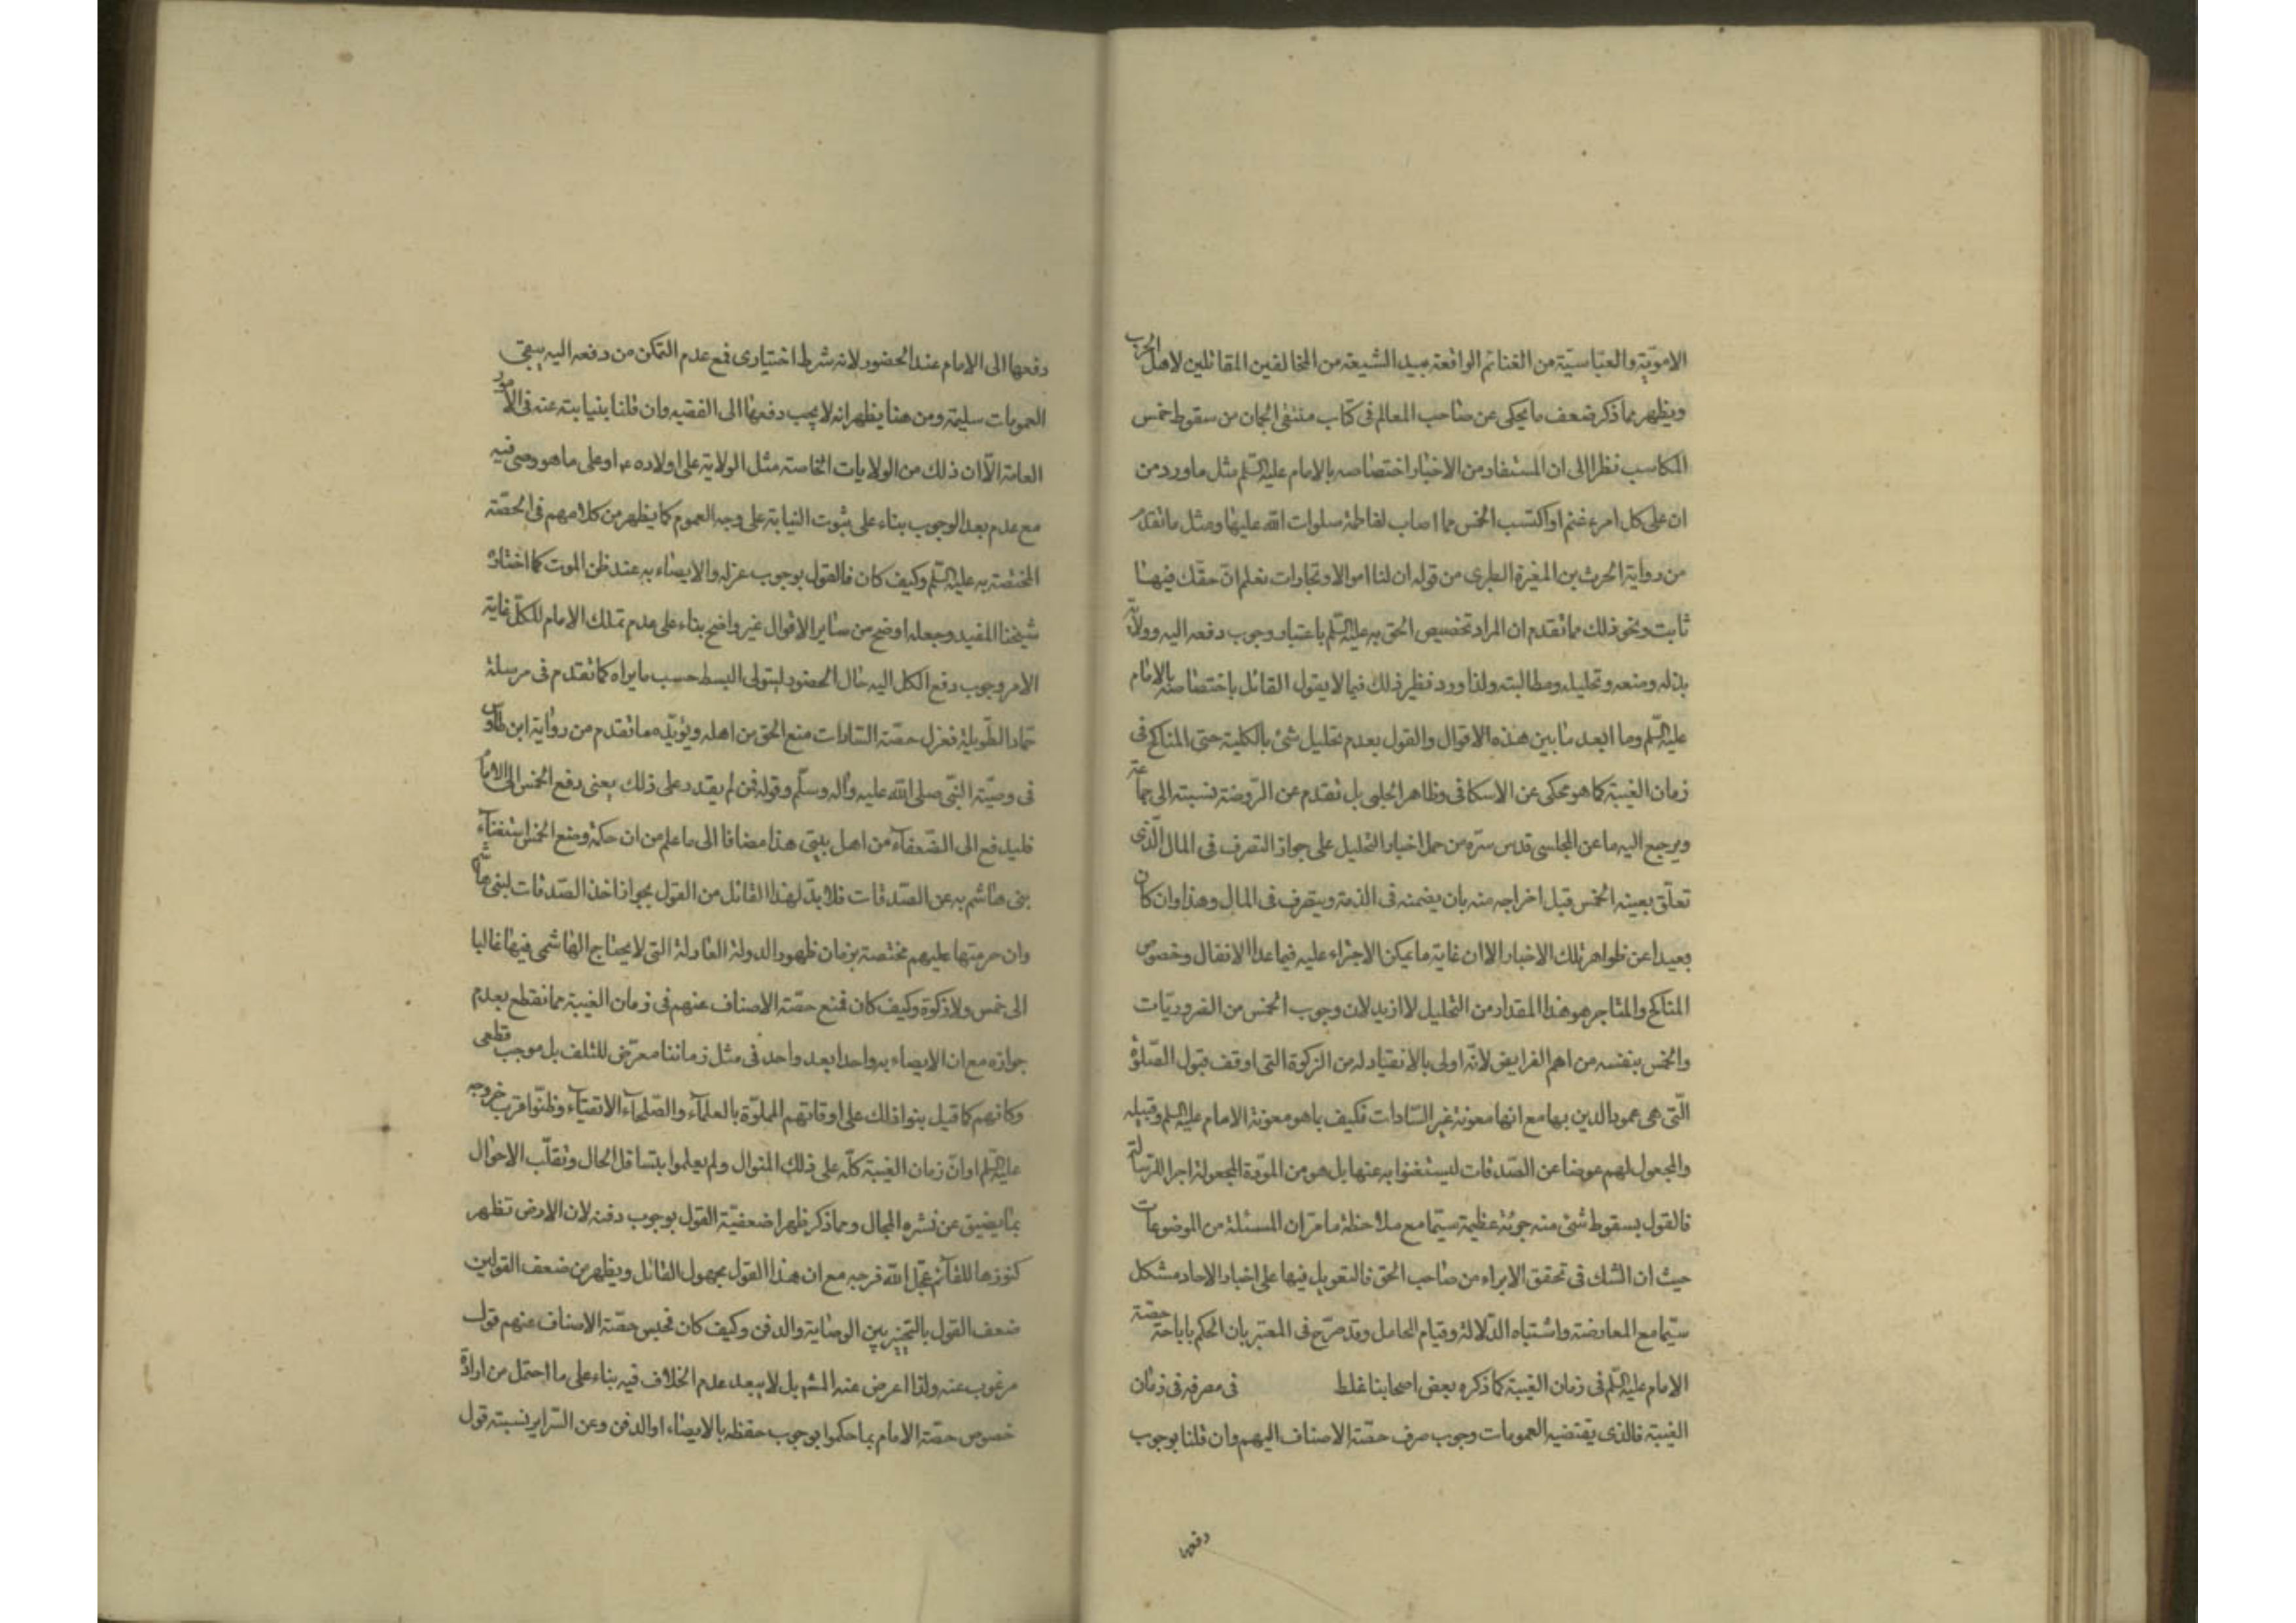 الامويّة والعباسيّة من الغنائم الواقعة بيد الشيعة من المخالفين المقاتلين لاهل الحرب
ويظهر مما ذكر ضعف ما يحكى عن صاحب المعالم فى كتاب منتقى الجمان من سقوط خمس
المكاسب نظرا الى ان المستفاد من الاخبار اختصاصه بالامام عليه السّلم مثل ما ورد من
ان على كل امرء غنم او اكتسب الخمس مما اصاب لفاطمة صلوات الله عليها ومثل ما تقدم
من رواية الحرث بن المغيرة النصرى من قوله ان لنا اموالا وتجارات نعلم انّ حقّك فيها
ثابت ونحو ذلك مما تقدم ان المراد تخصيص الحق به عليه السّلم باعتبار وجوب دفعه اليه وولاية
بذله ومنعه وتحليله ومطالبته ولذا ورد نظير ذلك فيما لا يقول القائل باختصاصه بالامام
عليه السّلم وما ابعد ما بين هذه الاقوال والقول بعدم تحليل شئ بالكلية حتى المناكح فى
زمان الغيبة كما هو محكى عن الاسكافى وظاهر الحلبى بل تقدم عن الرّوضة نسبته الى جماعة
ويرجع اليه ما عن المجلسى قدس سرّه من حمل اخبار التحليل على جواز التصرف فى المال الّذى
تعلّق بعينه الخمس قبل اخراجه منه بان يضمنه فى الذمة ويتصرف فى المال وهذا وان كان
بعيدا عن ظواهر تلك الاخبار الا ان غاية ما يمكن الاجتراء عليه فيما عدا الانفال وخصوص
المناكح والمتاجر هو هذا المقدار من التحليل لا ازيد لان وجوب الخمس من الضروريّات
والخمس بنفسه من اهم الفرايض لانّه اولى بالانقياد له من الزكوة التى اوقف قبول الصّلوة
الّتى هى عمود الدين بها مع انها معونة غير السّادات فكيف بما هو معونة الامام عليه السّلم وقبيله
والمجعول لهم عوضا عن الصّدقات ليستغنوا به عنها بل هو من المودّة المجعولة اجرا للرّسالة
فالقول بسقوط شئ منه جرئة عظيمة سيّما مع ملاحظة ما مرّ ان المسئلة من الموضوعات
حيث ان الشك فى تحقق الابراء من صاحب الحق فالتعويل فيها على اخبار الاحاد مشكل
سيّما مع المعارضة واشتباه الدّلالة وقيام الحامل وقد صرّح فى المعتبر بان الحكم باباحة حصّة
الامام عليه السّلم فى زمان الغيبة كما ذكره بعض اصحابنا غلط فى مصرفه فى زمان
الغيبة فالذى يقتضيه العمومات وجوب صرف حصّة الاصناف اليهم وان قلنا بوجوب
دفعها
دفعها الى الامام عند الحضور لانه شرط اختيارى فمع عدم التمكن من دفعه اليه يبقى
العمومات سليمة ومن هنا يظهر انه لا يجب دفعها الى الفقيه وان قلنا بنيابته عنه فى الامور
العامة الّا ان ذلك من الولايات الخاصة مثل الولاية على اولاده ع او على ما هو وصى فيه
مع عدم بعد الوجوب بناء على ثبوت النيابة على وجه العموم كما يظهر من كلامهم فى الحصّة
المختصة به عليه السّلم وكيف كان فالقول بوجوب عزله والايصاء به عند ظن الموت كما اختاره
شيخنا المفيد وجعله اوضح من ساير الاقوال غير واضح بناء على عدم تملك الامام للكلّ غاية
الامر وجوب دفع الكل اليه حال الحضور ليتولى البسط حسب ما يراه كما تقدم فى مرسلة
حماد الطّويلة فعزل حصّة السّادات منع الحق من اهله ويؤيّده ما تقدم من رواية ابن طاوس
فى وصيّة النّبى صلى الله عليه واله وسلّم وقوله فمن لم يقدر على ذلك يعنى دفع الخمس الى الامام
فليدفع الى الضّعفاء من اهل بيتى هذا مضافا الى ما علم من ان حكمة وضع الخمس استغناء
بنى هاشم به عن الصّدقات فلا بدّ لهذا القائل من القول بجواز اخذ الصّدقات لبنى هاشم
وان حرمتها عليهم مختصة بزمان ظهور الدولة العادلة التى لا يحتاج الهاشمى فيها غالبا
الى خمس ولا زكوة وكيف كان فمنع حصّة الاصناف عنهم فى زمان الغيبة مما نقطع بعدم
جوازه مع ان الايصاء به واحدا بعد واحد فى مثل زماننا معرّض للتلف بل موجب قطعى
وكانهم كما قيل بنوا ذلك على اوقاتهم المملوّة بالعلماء والصّلحاء الاتقياء وظنّوا قرب خروجه
عليه السّلم او انّ زمان الغيبة كلّه على ذلك المنوال ولم يعلموا بتسافل الحال وتقلّب الاحوال
بما يضيق عن نشره المجال ومما ذكر ظهر اضعفيّة القول بوجوب دفنه لان الارض تظهر
كنوزها للقائم عجّل الله فرجه مع ان هذا القول مجهول القائل ويظهر من ضعف القولين
ضعف القول بالتخيير بين الوصاية والدفن وكيف كان فحبس حصّة الاصناف عنهم قول
مرغوب عنه ولذا اعرض عنه المشهـ بل لا يبعد عدم الخلاف فيه بناء على ما احتمل من ارادة
خصوص حصّة الامام بما حكموا بوجوب حفظه بالايصاء او الدفن وعن السّراير نسبة قول